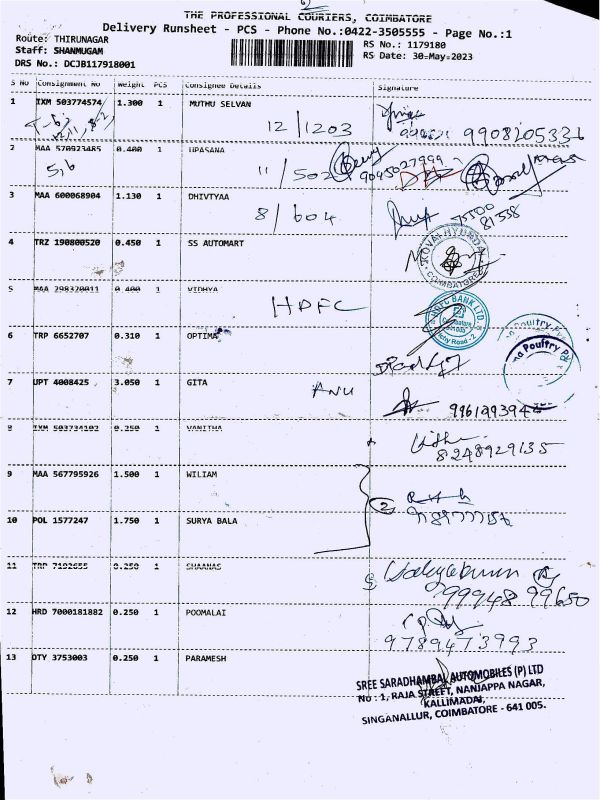 2
THE PROFESSIONAL COURIERS, COIMBATORE
Delivery Runsheet - PCS - Phone No.:0422-3505555 - Page No.:1
Route: THIRUNAGAR
Staff: SHANMUGAM
DRS No.: DCJB117918001
RS No.: 1179180
RS Date: 30-May-2023
S No Consignment No Weight PCS Consignee Details Signature
1 IXM 503774574 1.300 1 MUTHU SELVAN
12/1203 9908205336
2 MAA 570923485 0.400 1 UPASANA
5,6 11/502 9045027999
3 MAA 600068904 1.130 1 DHIVTYAA
8/604 75500
81538
4 TRZ 190800520 0.450 1 SS AUTOMART
KOVAI HYUNDAI
COIMBATORE
5 MAA 298320011 0.400 1 VIDHYA
HDFC
HDFC BANK LTD.
Coimbatore
Trichy Road - 2
6 TRP 6652707 0.310 1 OPTIMA
Poultry
na Poultry Pv
7 UPT 4008425 3.050 1 GITA
ANU
8 IXM 503734102 0.250 1 VANITHA
8248929135
9 MAA 567795926 1.500 1 WILIAM
2
10 POL 1577247 1.750 1 SURYA BALA
11 TRP 7192655 0.250 1 SHAANAS
99948 99650
12 HRD 7000181882 0.250 1 POOMALAI
9789473993
13 OTY 3753003 0.250 1 PARAMESH
SREE SARADHAMBAL AUTOMOBILES (P) LTD
No : 1, RAJA STREET, NANJAPPA NAGAR,
KALLIMADAI,
SINGANALLUR, COIMBATORE - 641 005.